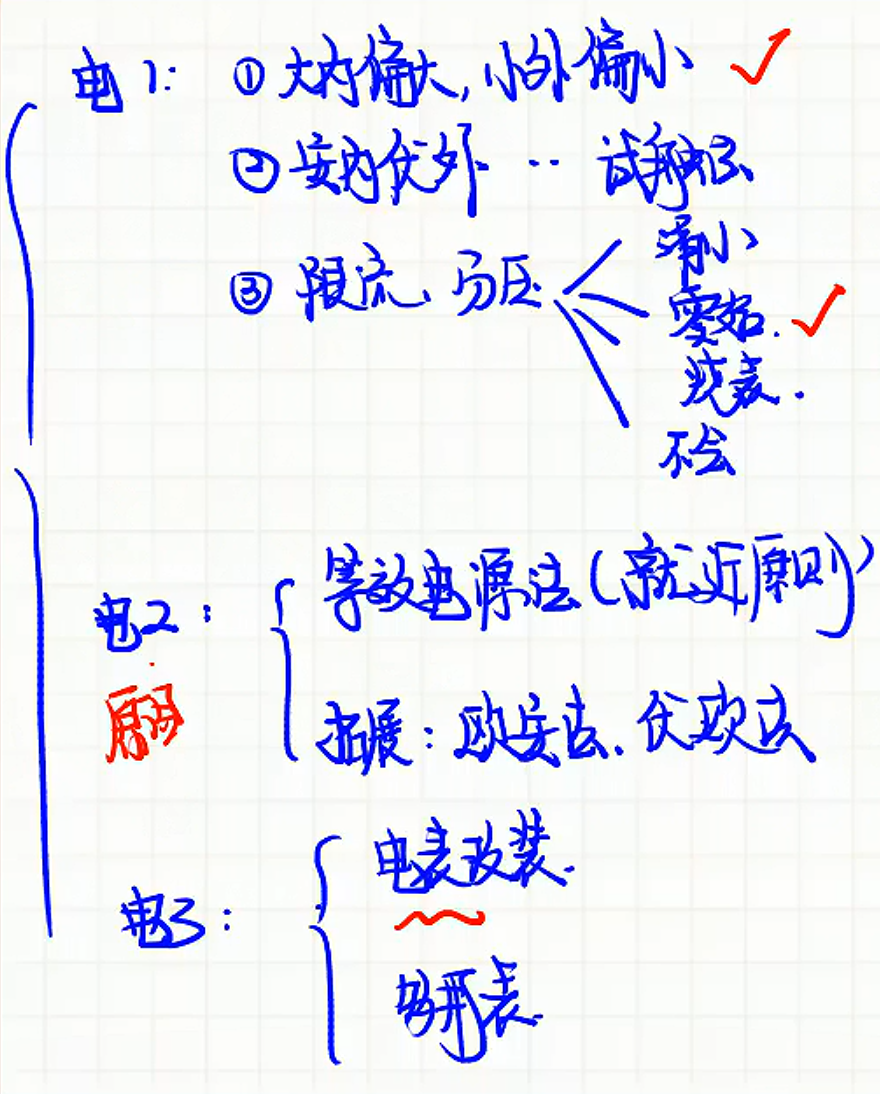 电1: ① 大内偏大, 小外偏小 ✓
② 安内伏外 ·· 试触法
③ 限流、分压
滑小
零始. ✓
烧表.
不会
电2: 等效电源法(就近原则)
拓展: 欧安法、伏欧法
电3: 电表改装.
多用表.